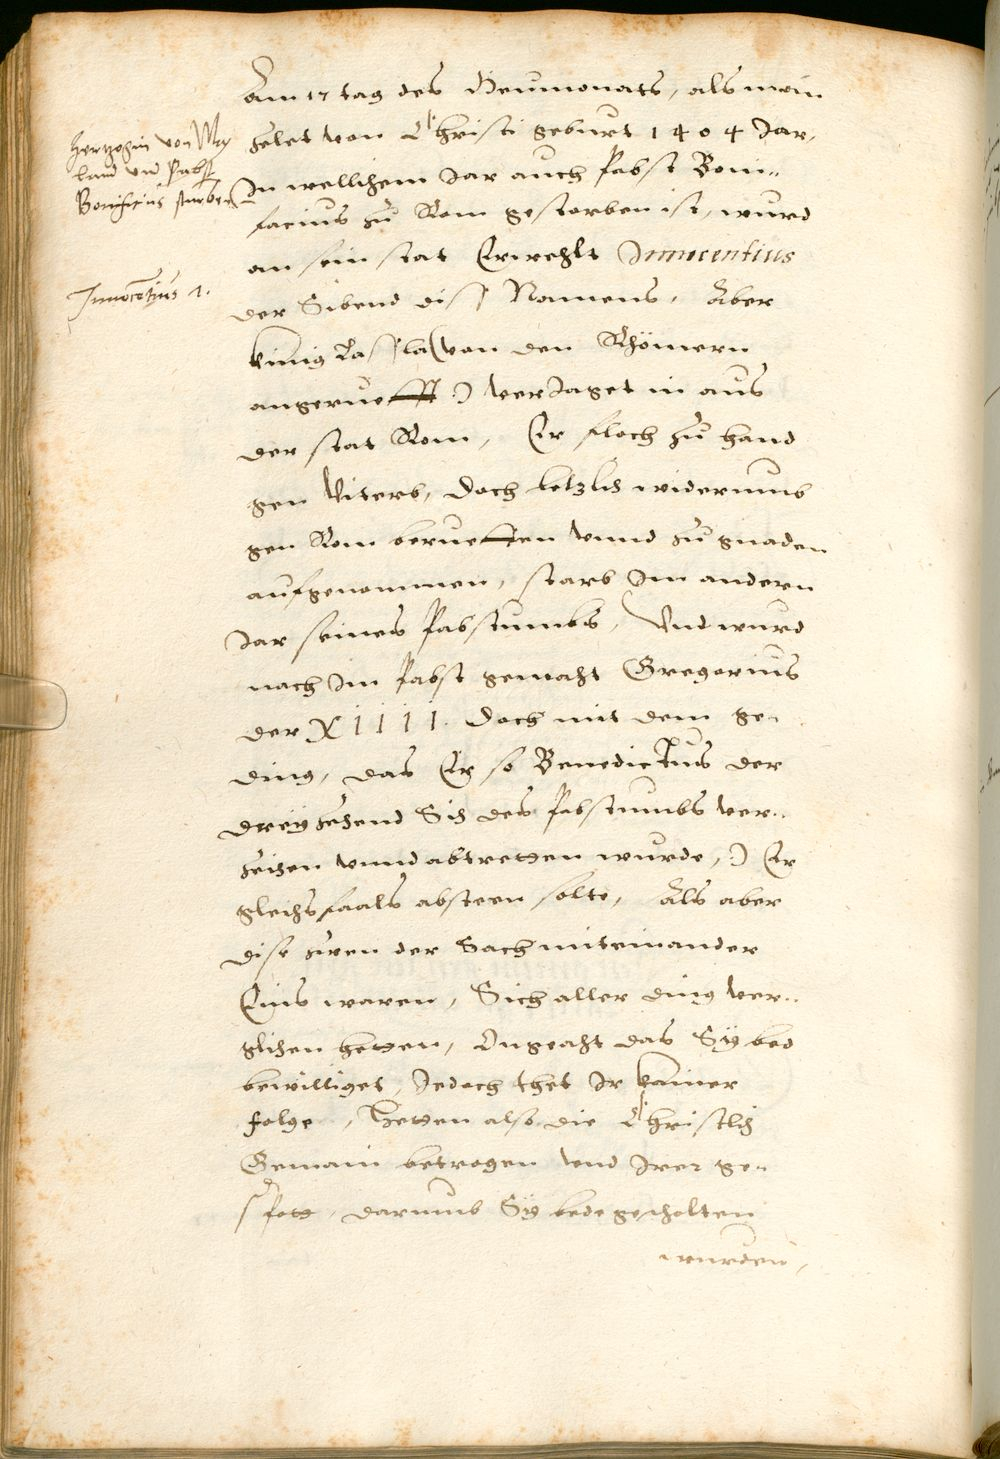 Am 17 tag des Heumonats, als man
zelet von Christi geburt 1404 Jar,
In wellichem Jar auch Pabst Boni¬
facius zu Rom gestorben ist, wurd
an sein stat Erwehlt Innocentius
der Sibend diss Namens, Aber
künig Lassla (von den Rhömern
angerueft :) verJaget in aus
der stat Rom, Er floch zu hand
gen Viterb, Doch letzlich widerumb
gen Rom berueffen vnnd zu gnaden
aufgenommen, starb Im andern
Jar seines Pabstumbs, Vnd wurd
nach Im Pabst gemacht Gregorius
der XIIII. Doch mit dem ge¬
ding, das Er so Benedictus der
dreyzehend Sich des Pabstumbs ver¬
zeihen vnnd abtretten wurde, :) Er
gleichsfaals absteen solte, Als aber
dise zwen der Sach miteinander
Eins waren, Sich aller ding ver¬
glichen hetten, Ongeacht das Sy bed
bewilliget, Jedoch thet Ir kainer
folge, Hetten also die Christlich
Gemain betrogen vnd Irer ge¬
spott, darumb Sy bede gescholten
wurden,
Hertzogin von May
land vnd Pabst
Bonifacius sturben
Innocentzius 7.